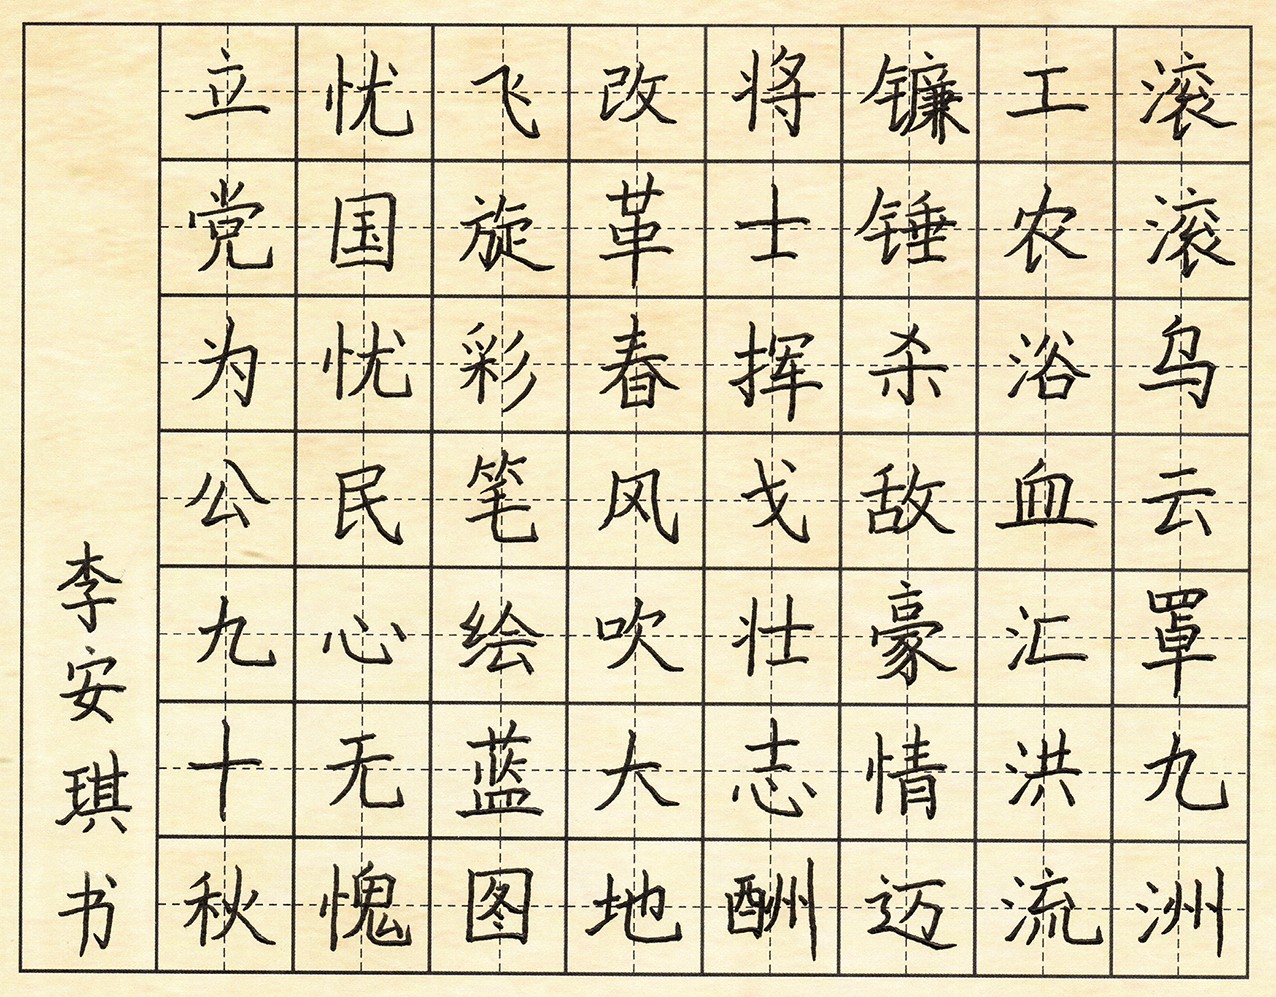 滚滚乌云罩九洲
工农浴血汇洪流
镰锤杀敌豪情迈
将士挥戈壮志酬
改革春风吹大地
飞旋彩笔绘蓝图
忧国忧民心无愧
立党为公九十秋
李安琪书